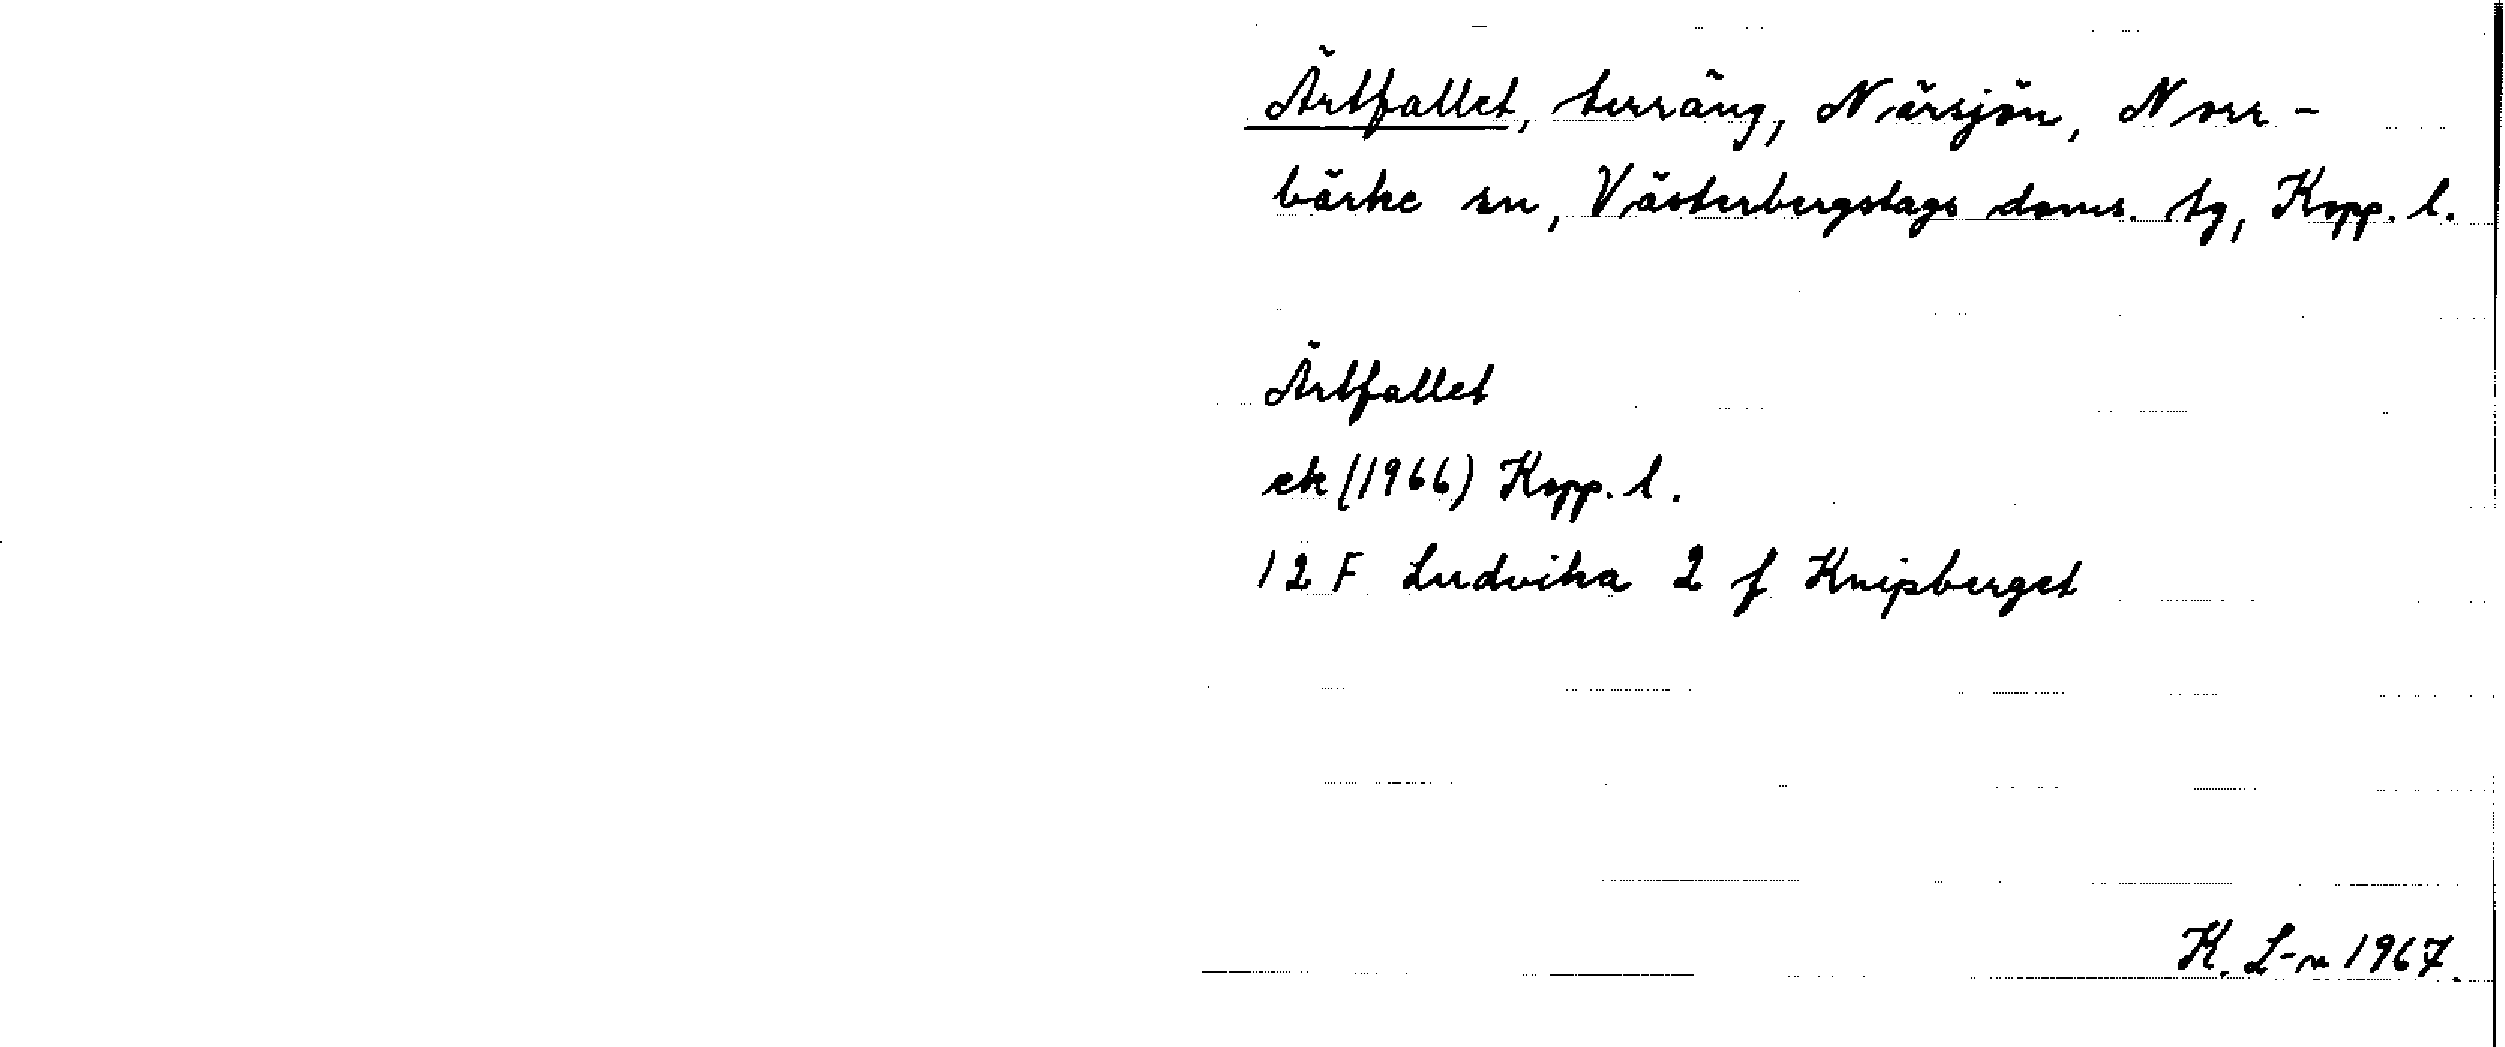 Ärtfallet, terräng, Närsjön, Norr-
bärke sn, Västerbergslags doms. tg, Kopp. l.
Ärtfallet
ek (1966) Kopp. l.
12 F Ludvika 2 f Knipberget
K. L-n 1967.